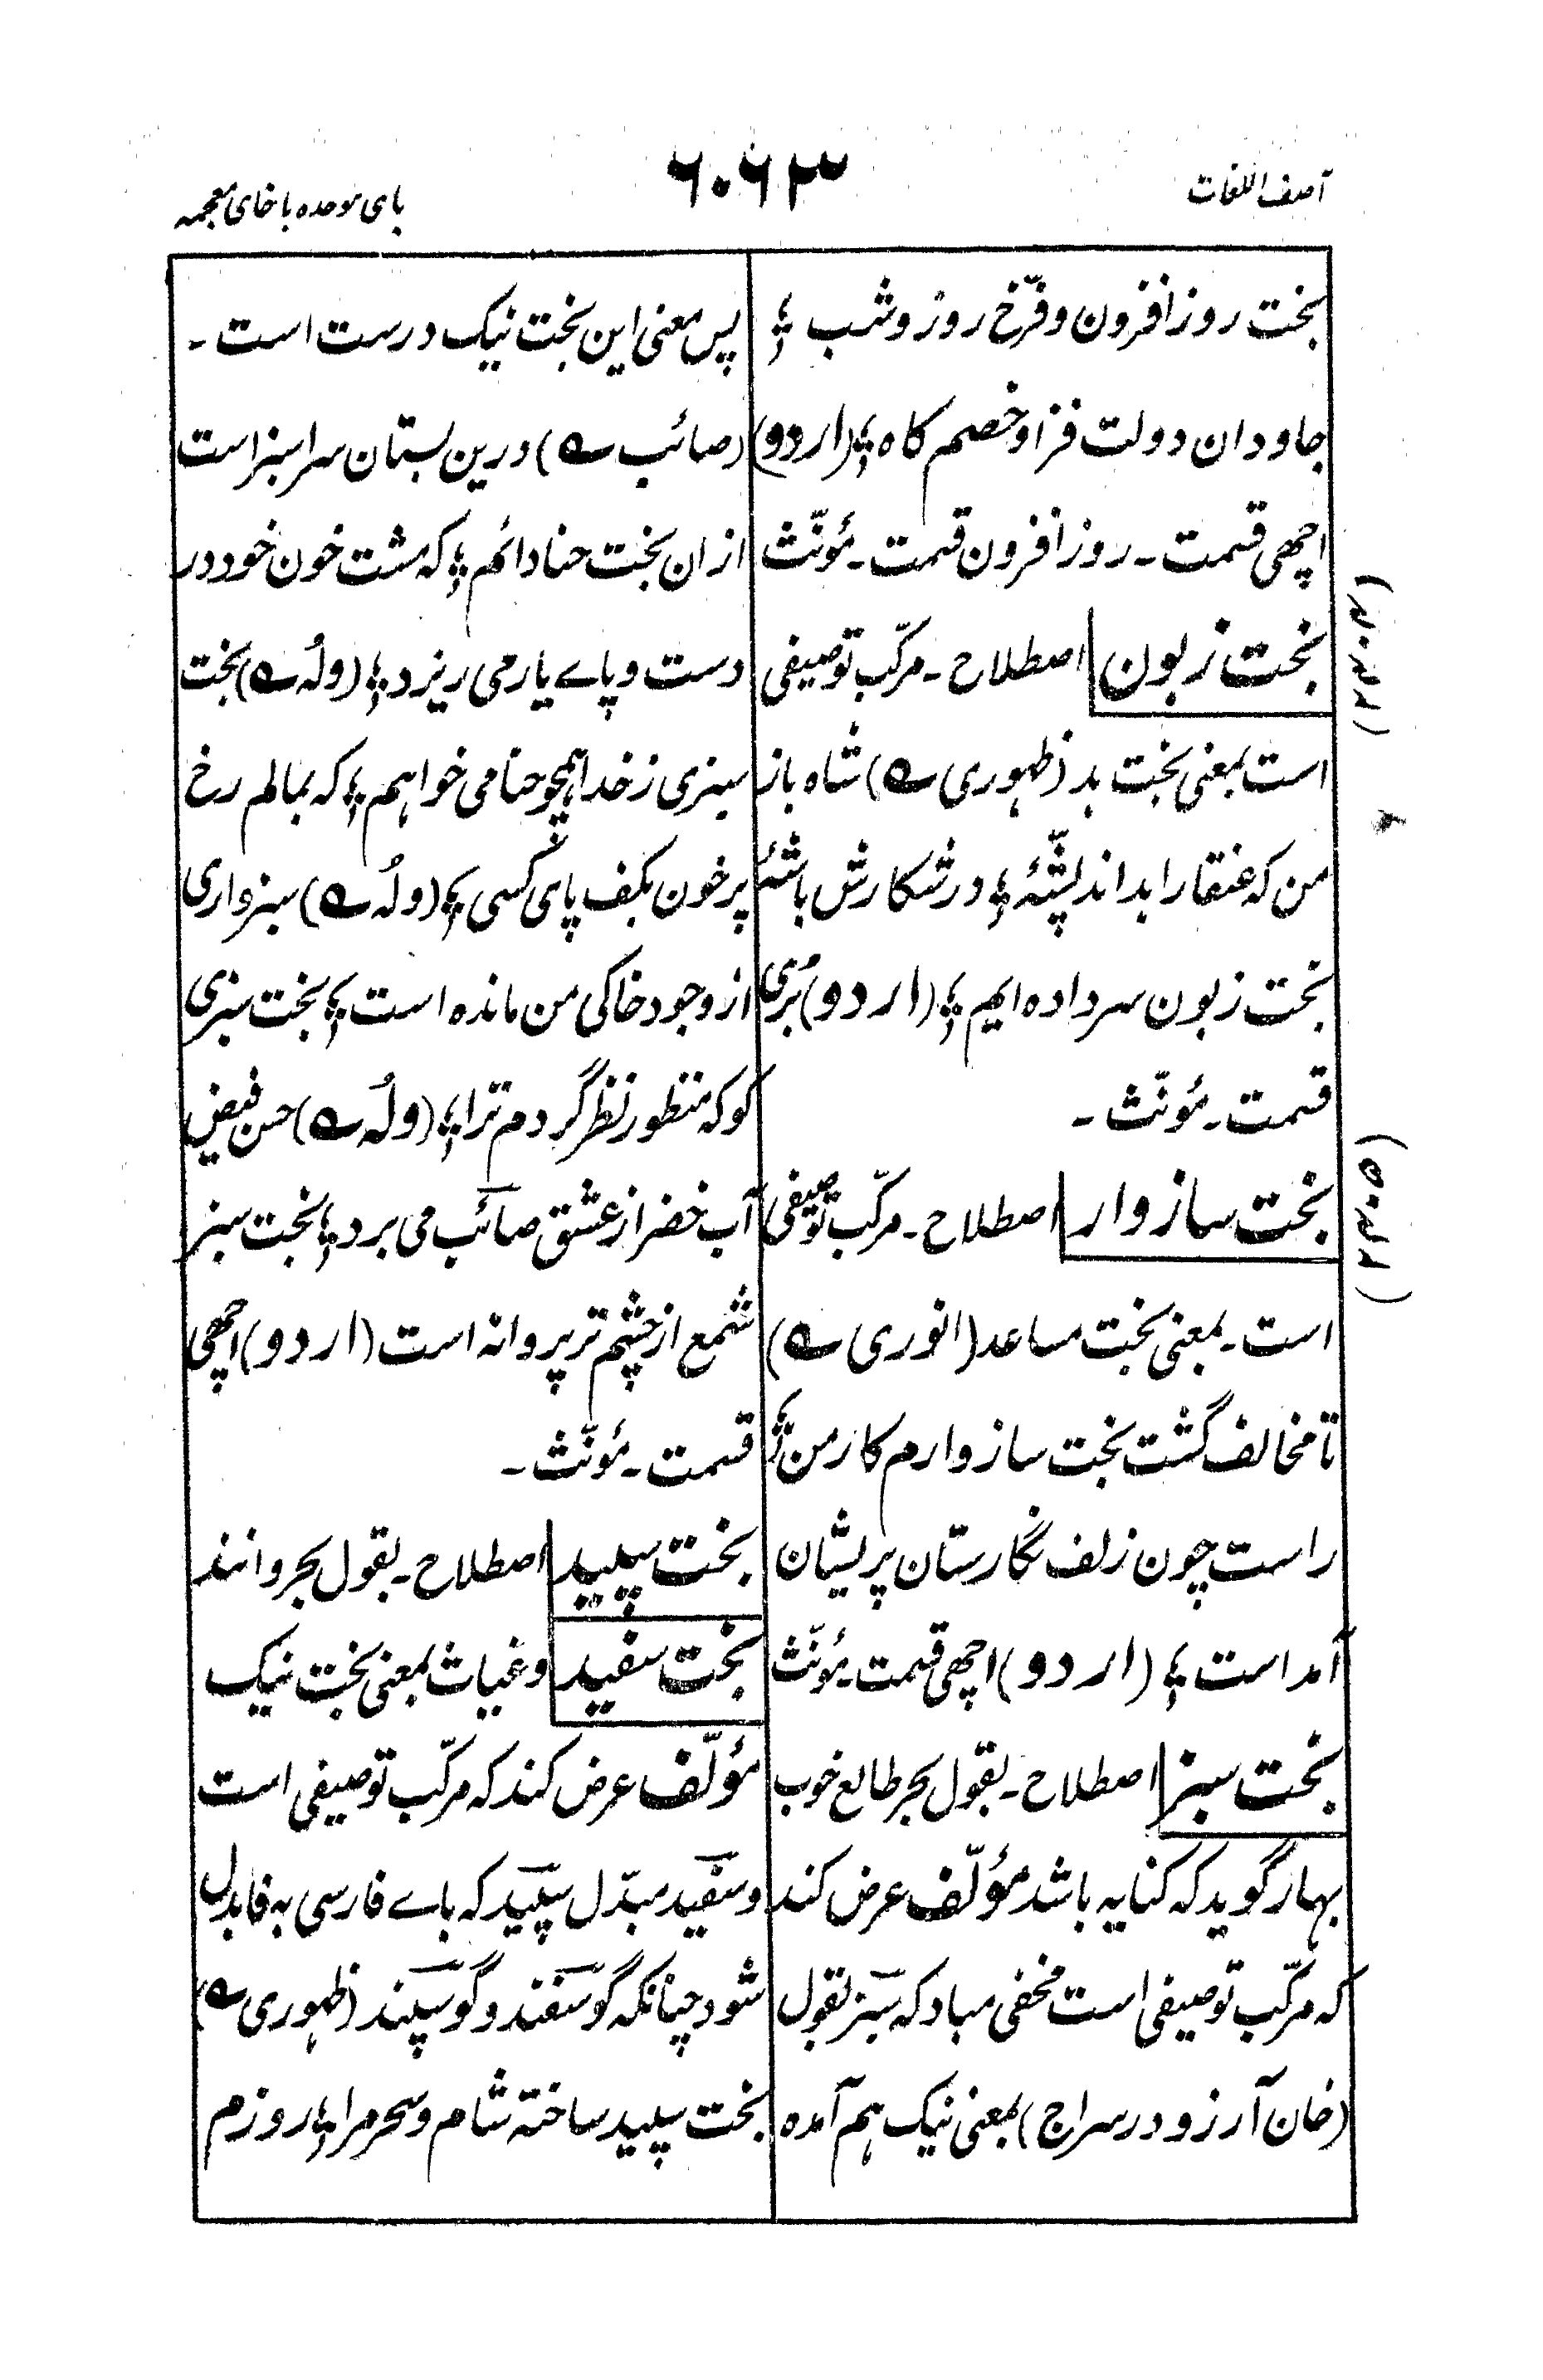 آصف اللغات
۶۰۶۳
بای موحده با خای معجمه
بخت روز افزون و فرّخ روز و شب ؛
جاودان دولت فزا و خصم کاه ؛ (اردو)
اچھی قسمت ۔ روز افزون قسمت ۔ مؤنّث
بخت زبون اصطلاح ۔ مرکّب توصیفی
است بمعنی بخت بد (ظهوری ے) شاه باز
من که عنقا را بداند پشّهٔ ؛ در شکارش باشهٔ
بخت زبون سر داده ایم ؛ (اردو) بُری
قسمت ۔ مؤنّث ۔
بخت سازوار اصطلاح ۔ مرکّب توصیفی
است ۔ بمعنی بخت مساعد (انوری ے)
تا مخالف گشت بخت سازوارم کار من ؛
راست چون زلف نگارستان پریشان
آمد است ؛ (اردو) اچھی قسمت ۔ مؤنّث
بخت سبز اصطلاح ۔ بقول بحر طالع خوب
بهار گوید که کنایه باشد مؤلّف عرض کند
که مرکّب توصیفی است مخفی مباد که سبز بقول
(خان آرزو در سراج) بمعنی نیک هم آمده
پس معنی این بخت نیک درست است ۔
(صائب ے) درین بستان سرا سبز است
ازان بخت حنا دائم ؛ که مشت خون خود در
دست و پاے یار می ریزد ؛ (ولهٗ ے) بخت
سبزی ز خدا همچو حنا می خواهم ؛ که بمالم رخ
پر خون بکف پای کسی ؛ (ولهٗ ے) سبزواری
از وجود خاکی من مانده است ؛ بخت سبزی
کو که منظور نظر گردم ترا ؛ (ولهٗ ے) حسن فیض
آب خضر از عشق صائب می برد ؛ بخت سبز
شمع از چشم تر پروانه است (اردو) اچھی
قسمت ۔ مؤنّث ۔
بخت سپید اصطلاح ۔ بقول بحر و انند
بخت سفید و غیاث بمعنی بخت نیک
مؤلّف عرض کند که مرکّب توصیفی است
و سفید مبدّل سپید که باے فارسی به فا بدل
شود چنانکه گوسفند و گوسپند (ظهوری ے)
بخت سپید ساخته شام و سحر مرا ؛ روزم